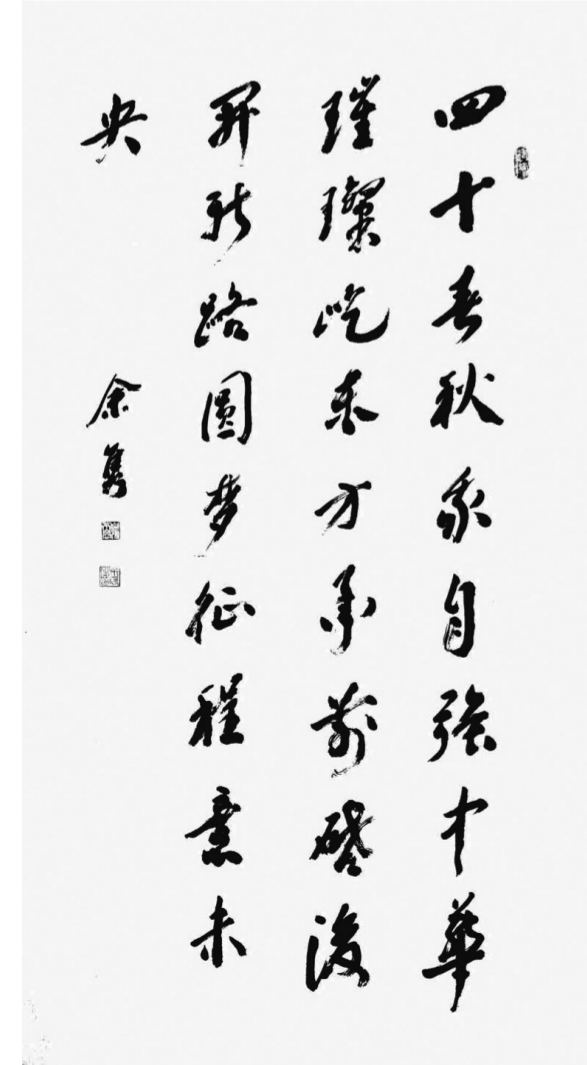 四十春秋我自強中華
璀璨屹東方承前啓後
開新路圓梦征程意未
央
余雋